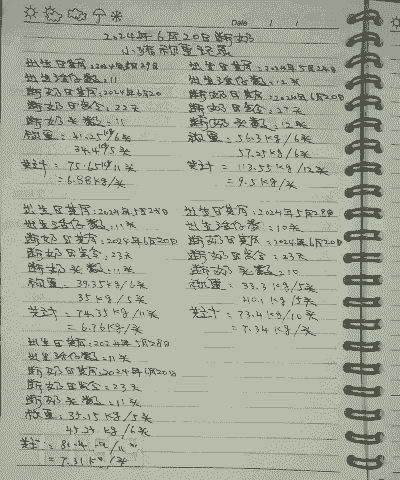 Date / /
2024年6月20日断奶
小猪称重记录
出生日期:2024年5月29日
出生活仔数:11
断奶日期:2024年6月20
断奶日龄:22天
断奶头数:11
称重:41.25kg/6头
34.4kg/5头
共计:75.65kg/11头
=6.88kg/头
出生日期:2024年5月24日
出生活仔数:12头
断奶日期:2024年6月20日
断奶日龄:27天
断奶头数:12头
称重:56.3kg/6头
57.25kg/6头
共计:113.55kg/12头
=9.5kg/头
出生日期:2024年5月28日
出生活仔数:11头
断奶日期:2024年6月20日
断奶日龄:23天
断奶头数:11头
称重:39.35kg/6头
35kg/5头
共计:74.35kg/11头
=6.76kg/头
出生日期:2024年5月28日
出生活仔数:10头
断奶日期:2024年6月20日
断奶日龄:23天
断奶头数:10
称重:33.3kg/5头
40.1kg/5头
共计:73.4kg/10头
=7.34kg/头
出生日期:2024年5月28日
出生活仔数:11头
断奶日期:2024年6月20日
断奶日龄:23天
断奶头数:11头
称重:35.15kg/5头
45.25kg/6头
共计:80.4kg/11头
=7.31kg/头